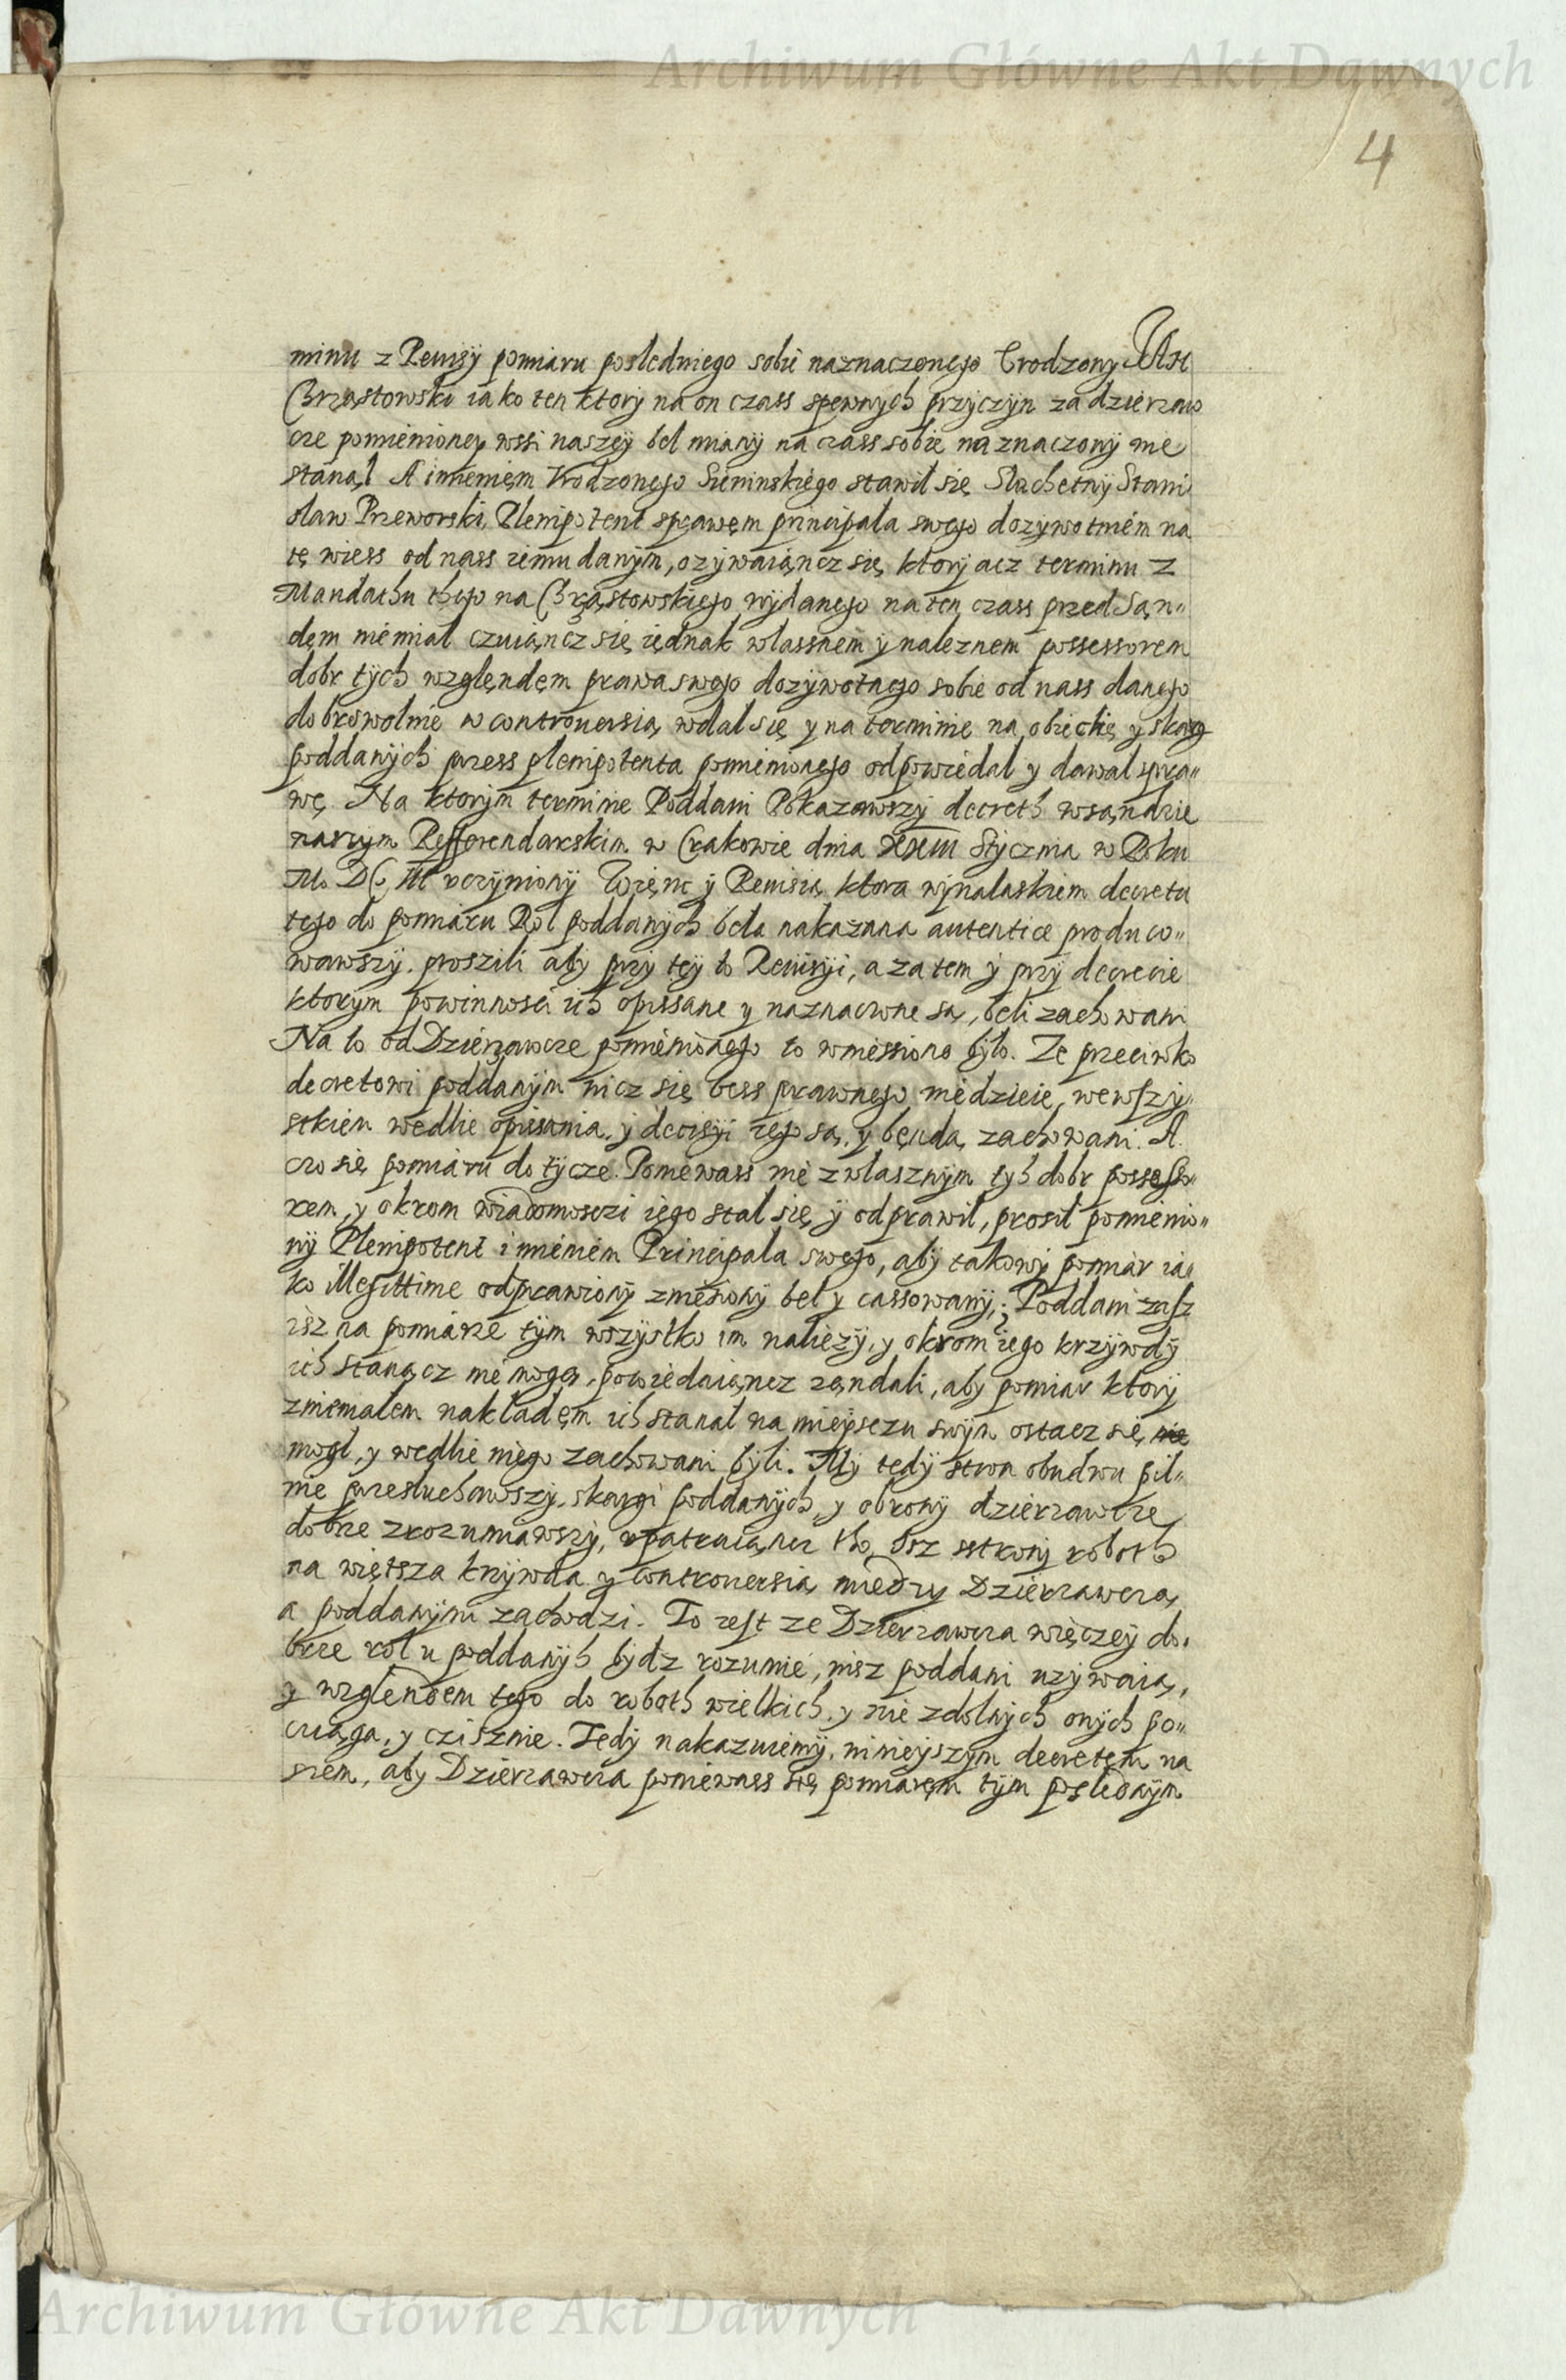 Archiwum Główne Akt Dawnych
4
minu z Reuisÿ pomiaru posledniego sobie naznaczonego Vrodzony JAN
Brząstowski iako ten ktorÿ na on czass spewnych przÿczyn za dzierzaw
cze pomienioneÿ wssi naszeÿ bel mianÿ na czass sobie naznaczonÿ nie
stanąl A imieniem Vrodzonego Sieninskiego stawil się Slachetnÿ Stani
slaw Przeworski Plenipotent sprawęm principala swego dozywotniem na
tę wiess od nass iemu danÿm, ozÿwaiąncz się, ktorÿ acz terminu z
Mandathu thego na Brząstowskiego wÿdanego na ten czass przed Sąn„
dęm niemial czuiąncz się iędnak wlassnem ÿ naleznem possessorem
dobr tÿch wzglęndęm prawa swego dozÿwotnego sobie od nass danego
dobrowolnie w controuersią wdal się y na terminie na obiectię y skarg
poddanÿch przess plenipotenta pomienionego odpowiedal y dawal spra„
wę. Na ktorÿm terminie Poddani Pokazawszÿ decreth wsąndzie
naszym Refferendarskim w Crakowie dnia Stÿcznia w Roku
vczÿnionÿ Więnc ÿ Reuisią ktora wÿnalaskiem decretu
tego do pomiaru Rol poddanÿch bela nakazana autentice produco„
wawszÿ. proszili abÿ przÿ tęÿ to Reuisÿi, a za tem ÿ przÿ decrecie
ktorÿm powinnosci ich opissane y naznaczone są, beli zachowani
Na to od Dzierzawcze pomienionego to wniessiono bÿlo. Ze przeciwko
decretowi poddanÿm nicz się bess prawnego niedzieie, wewszÿ„
stkiem wedlie opisania, ÿ decisÿi iego są, y bęndą zachowani. A
czo się pomiaru dotÿcze. Poniewass nie z wlasznÿm tÿch dobr possesso„
rem, y okrom wiadomosczi iego stal się ÿ odprawil, prosil pomienio„
nÿ Plenipotent imieniem Principala swego, abÿ takowÿ pomiar ia„
ko illegittime odprawionÿ zniesionÿ bel y cassowanÿ,: Poddani zasz
isz na pomiarze tÿm wszÿstko im naliezÿ, y okrom iego krzÿwdÿ
ich stanącz nie mogą, powiedaiąncz ząndali, abÿ pomiar ktorÿ
zniemalem nakladęm ich stanal na mieÿsczu swÿm ostacz się nie
mogl, y wedlie niego zachowani bÿli. Mÿ tedÿ stron obudwu pil„
nie przesluchawszÿ, skargi poddanÿch, y obronÿ dzierzawcze
dobrze zrozumiawszÿ, vpatruiąncz tho, isz sstronÿ roboth
na więtsza krzÿwda y controuersia miedzy Dzierzawczą
a poddanÿmi zachodzi. To iest ze Dzierzawcza więczeÿ do„
brze rol u poddanÿch bÿdz rozumie, nisz poddani uzÿwaią,
y wzglendem tego do roboth wielkich, y nie zdolnÿch onÿch po„
cziąga, y cziisznie. Tedÿ nakazuiemÿ, ninieÿszÿm decretęm na
szem, abÿ Dzierzawcza poniewass się pomiaręm tÿm posliednÿm
Archiwum Główne Akt Dawnych